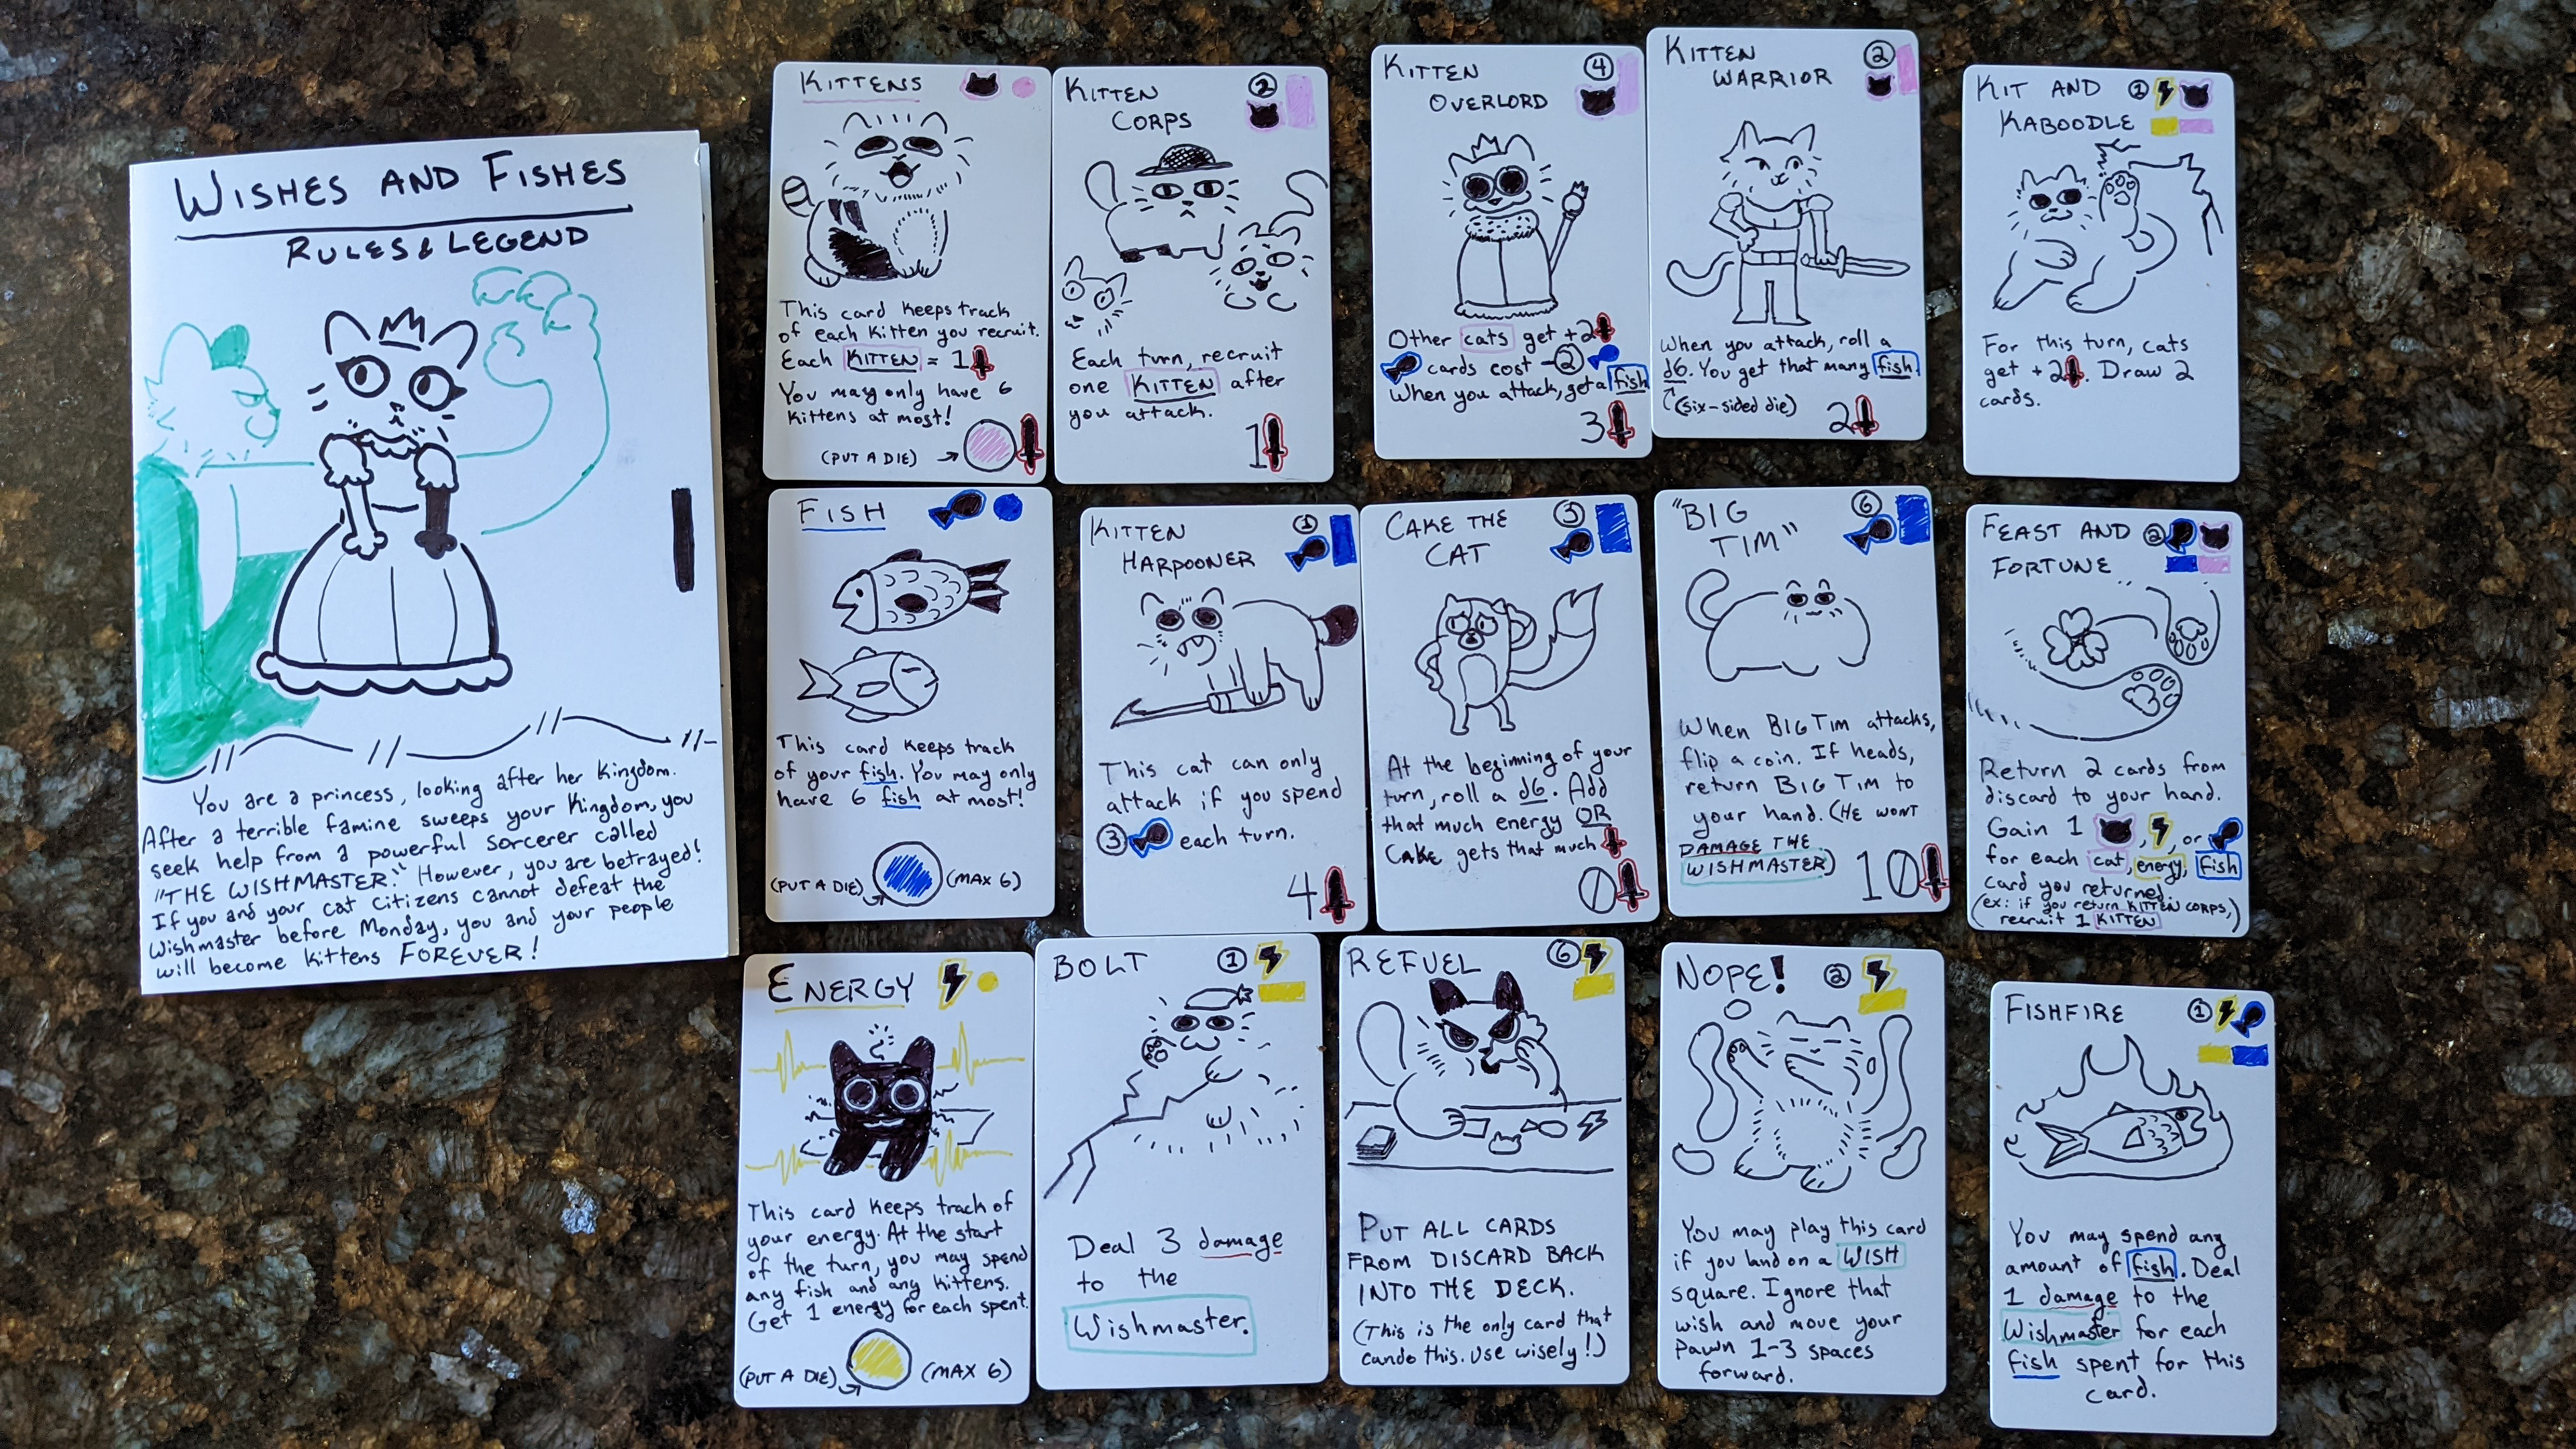 WISHES AND FISHES
RULES & LEGEND
You are a princess, looking after her Kingdom.
After a terrible famine sweeps your Kingdom, you
seek help from a powerful sorcerer called
"THE WISHMASTER." However, you are betrayed!
If you and your cat citizens cannot defeat the
Wishmaster before Monday, you and your people
will become kittens FOREVER!
KITTENS
This card keeps track
of each kitten you recruit.
Each KITTEN = 1
You may only have 6
kittens at most!
(PUT A DIE)
KITTEN
CORPS
2
Each turn, recruit
one KITTEN after
you attack.
1
KITTEN
OVERLORD
4
Other cats get +2
cards cost -2
When you attack, get a fish
3
KITTEN
WARRIOR
2
When you attack, roll a
d6. You get that many fish.
(six-sided die)
2
KIT AND
KABOODLE
1
For this turn, cats
get +2. Draw 2
cards.
FISH
This card keeps track
of your fish. You may only
have 6 fish at most!
(PUT A DIE)
(MAX 6)
KITTEN
HARPOONER
1
This cat can only
attack if you spend
3 each turn.
4
CAKE THE
CAT
3
At the beginning of your
turn, roll a d6. Add
that much energy OR
Cake gets that much
0
"BIG
TIM"
6
When BIG TIM attacks,
flip a coin. If heads,
return BIG TIM to
your hand. (HE WONT
DAMAGE THE
WISHMASTER)
10
FEAST AND
FORTUNE
2
Return 2 cards from
discard to your hand.
Gain 1 , , or
for each cat, energy, fish
card you returned.
(ex: if you return KITTEN CORPS,
recruit 1 KITTEN)
ENERGY
This card keeps track of
your energy. At the start
of the turn, you may spend
any fish and any kittens.
Get 1 energy for each spent.
(PUT A DIE)
(MAX 6)
BOLT
1
Deal 3 damage
to the
Wishmaster.
REFUEL
6
PUT ALL CARDS
FROM DISCARD BACK
INTO THE DECK.
(This is the only card that
can do this. Use wisely!)
NOPE!
2
You may play this card
if you land on a WISH
square. Ignore that
wish and move your
pawn 1-3 spaces
forward.
FISHFIRE
1
You may spend any
amount of fish. Deal
1 damage to the
Wishmaster for each
fish spent for this
card.